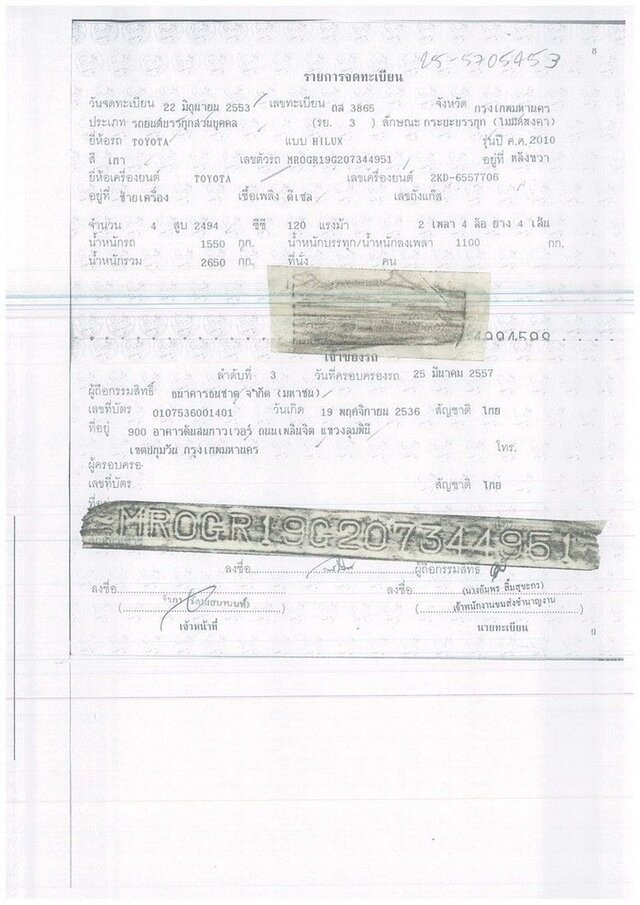 8
25-5705453
รายการจดทะเบียน
วันจดทะเบียน 22 มิถุนายน 2553 เลขทะเบียน ถส 3865 จังหวัด กรุงเทพมหานคร
ประเภท รถยนต์บรรทุกส่วนบุคคล (รย. 3 ) ลักษณะ กระบะบรรทุก (ไม่มีหลังคา)
ยี่ห้อรถ TOYOTA แบบ HILUX รุ่นปี ค.ศ. 2010
สี เทา เลขตัวรถ MROGR19G207344951 อยู่ที่ หลังขวา
ยี่ห้อเครื่องยนต์ TOYOTA เลขเครื่องยนต์ 2KD-6557706
อยู่ที่ ซ้ายเครื่อง เชื้อเพลิง ดีเซล เลขถังแก๊ส
จำนวน 4 สูบ 2494 ซีซี 120 แรงม้า 2 เพลา 4 ล้อ ยาง 4 เส้น
น้ำหนักรถ 1550 กก. น้ำหนักบรรทุก/น้ำหนักลงเพลา 1100 กก.
น้ำหนักรวม 2650 กก. ที่นั่ง คน
เจ้าของรถ
ลำดับที่ 3 วันที่ครอบครองรถ 25 มีนาคม 2557
ผู้ถือกรรมสิทธิ์ ธนาคารธนชาต จำกัด (มหาชน)
เลขที่บัตร 0107536001401 วันเกิด 19 พฤศจิกายน 2536 สัญชาติ ไทย
ที่อยู่ 900 อาคารต้นสนทาวเวอร์ ถนนเพลินจิต แขวงลุมพินี
เขตปทุมวัน กรุงเทพมหานคร โทร.
ผู้ครอบครอง
เลขที่บัตร สัญชาติ ไทย
ที่อยู่
MROGR19G207344951
ลงชื่อ ผู้ถือกรรมสิทธิ์
ลงชื่อ ลงชื่อ
เจ้าพนักงานขนส่งชำนาญงาน
เจ้าหน้าที่ นายทะเบียน